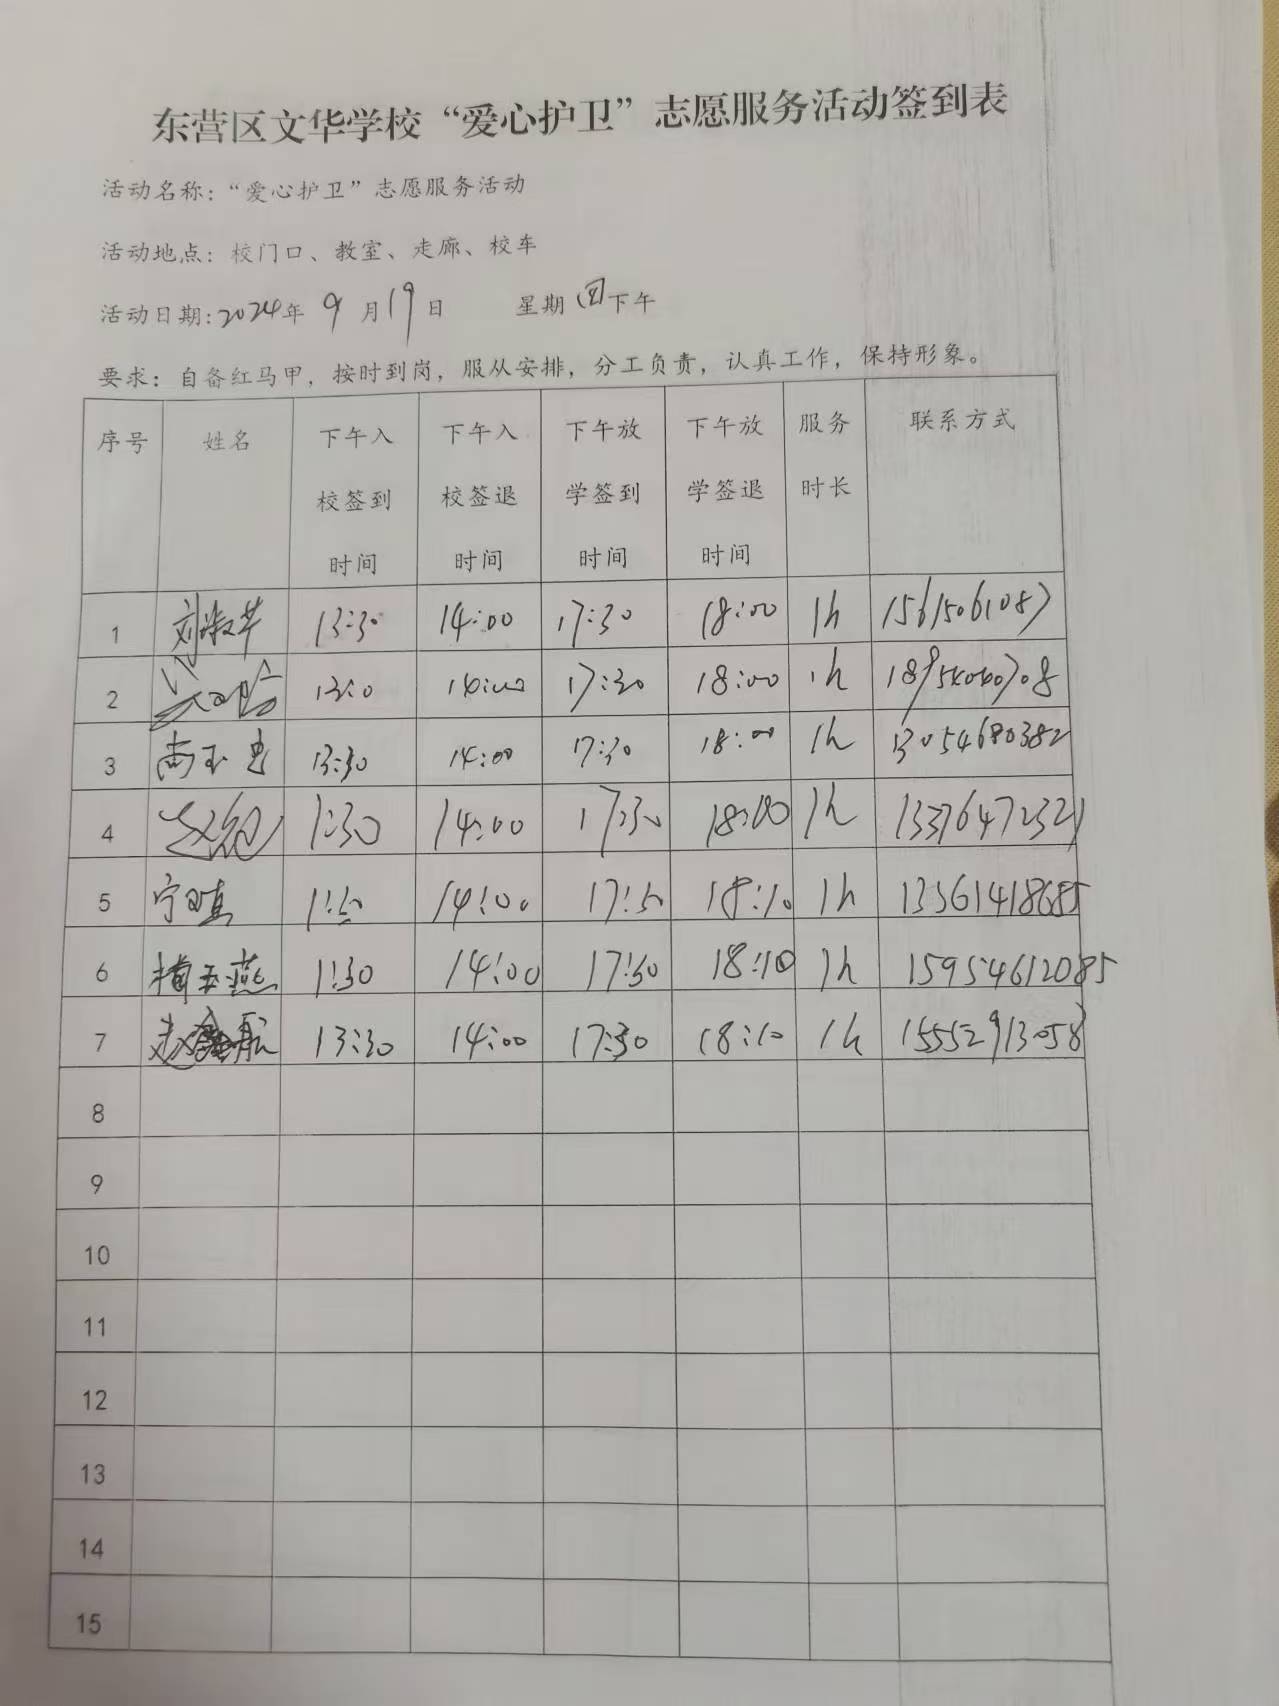 东营区文华学校“爱心护卫”志愿服务活动签到表
活动名称：“爱心护卫”志愿服务活动
活动地点：校门口、教室、走廊、校车
活动日期：2024年 9月19日 星期四下午
要求：自备红马甲，按时到岗，服从安排，分工负责，认真工作，保持形象。
序号 姓名 下午入校签到时间 下午入校签退时间 下午放学签到时间 下午放学签退时间 服务时长 联系方式
1 刘淑苹 13:30 14:00 17:30 18:00 1h 15615061087
2 14:00 17:30 18:00 1h
3 尚玉 13:30 14:00 17:30 18:00 1h 13054680382
4 1:30 14:00 17:30 18:00 1h 13376472321
5 宁 14:00 17:30 18:10 1h 13361418685
6 玉燕 1:30 14:00 17:30 18:10 1h 15954612085
7 赵 航 13:30 14:00 17:30 18:10 1h 15552913058
8
9
10
11
12
13
14
15